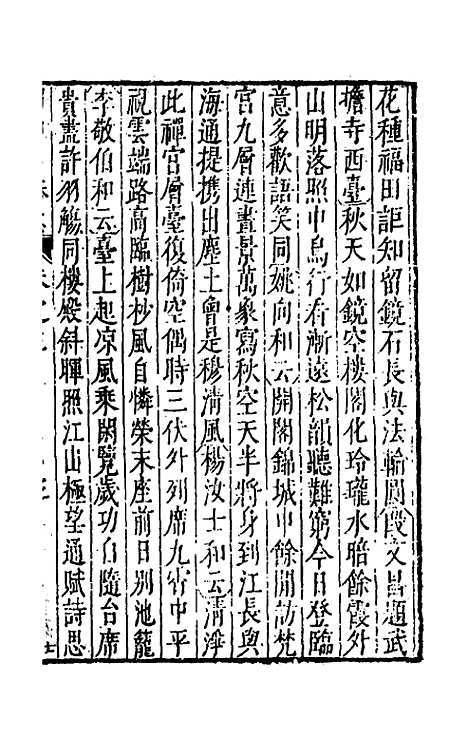 花種福田詎知留鏡石長與法輪圓段文昌題武
擔寺西臺秋天如鏡空樓閣化玲瓏水暗餘霞外
山明落照中鳥行看漸遠松韻聽難窮今日登臨
意多歡語笑同姚向和云開閣錦城中餘閒訪梵
宮九層連晝景萬象寫秋空天半將身到江長與
海通提携出塵土會是穆清風楊汝士和云清淨
此禪宮層臺復倚空偶時三伏外列席九霄中平
視雲端路高臨樹杪風自憐榮末座前日别池籠
李敬伯和云臺上起凉風乘閑覽歲功自隨台席
貴盡許羽觴同樓殿斜暉照江山極望通賦詩思